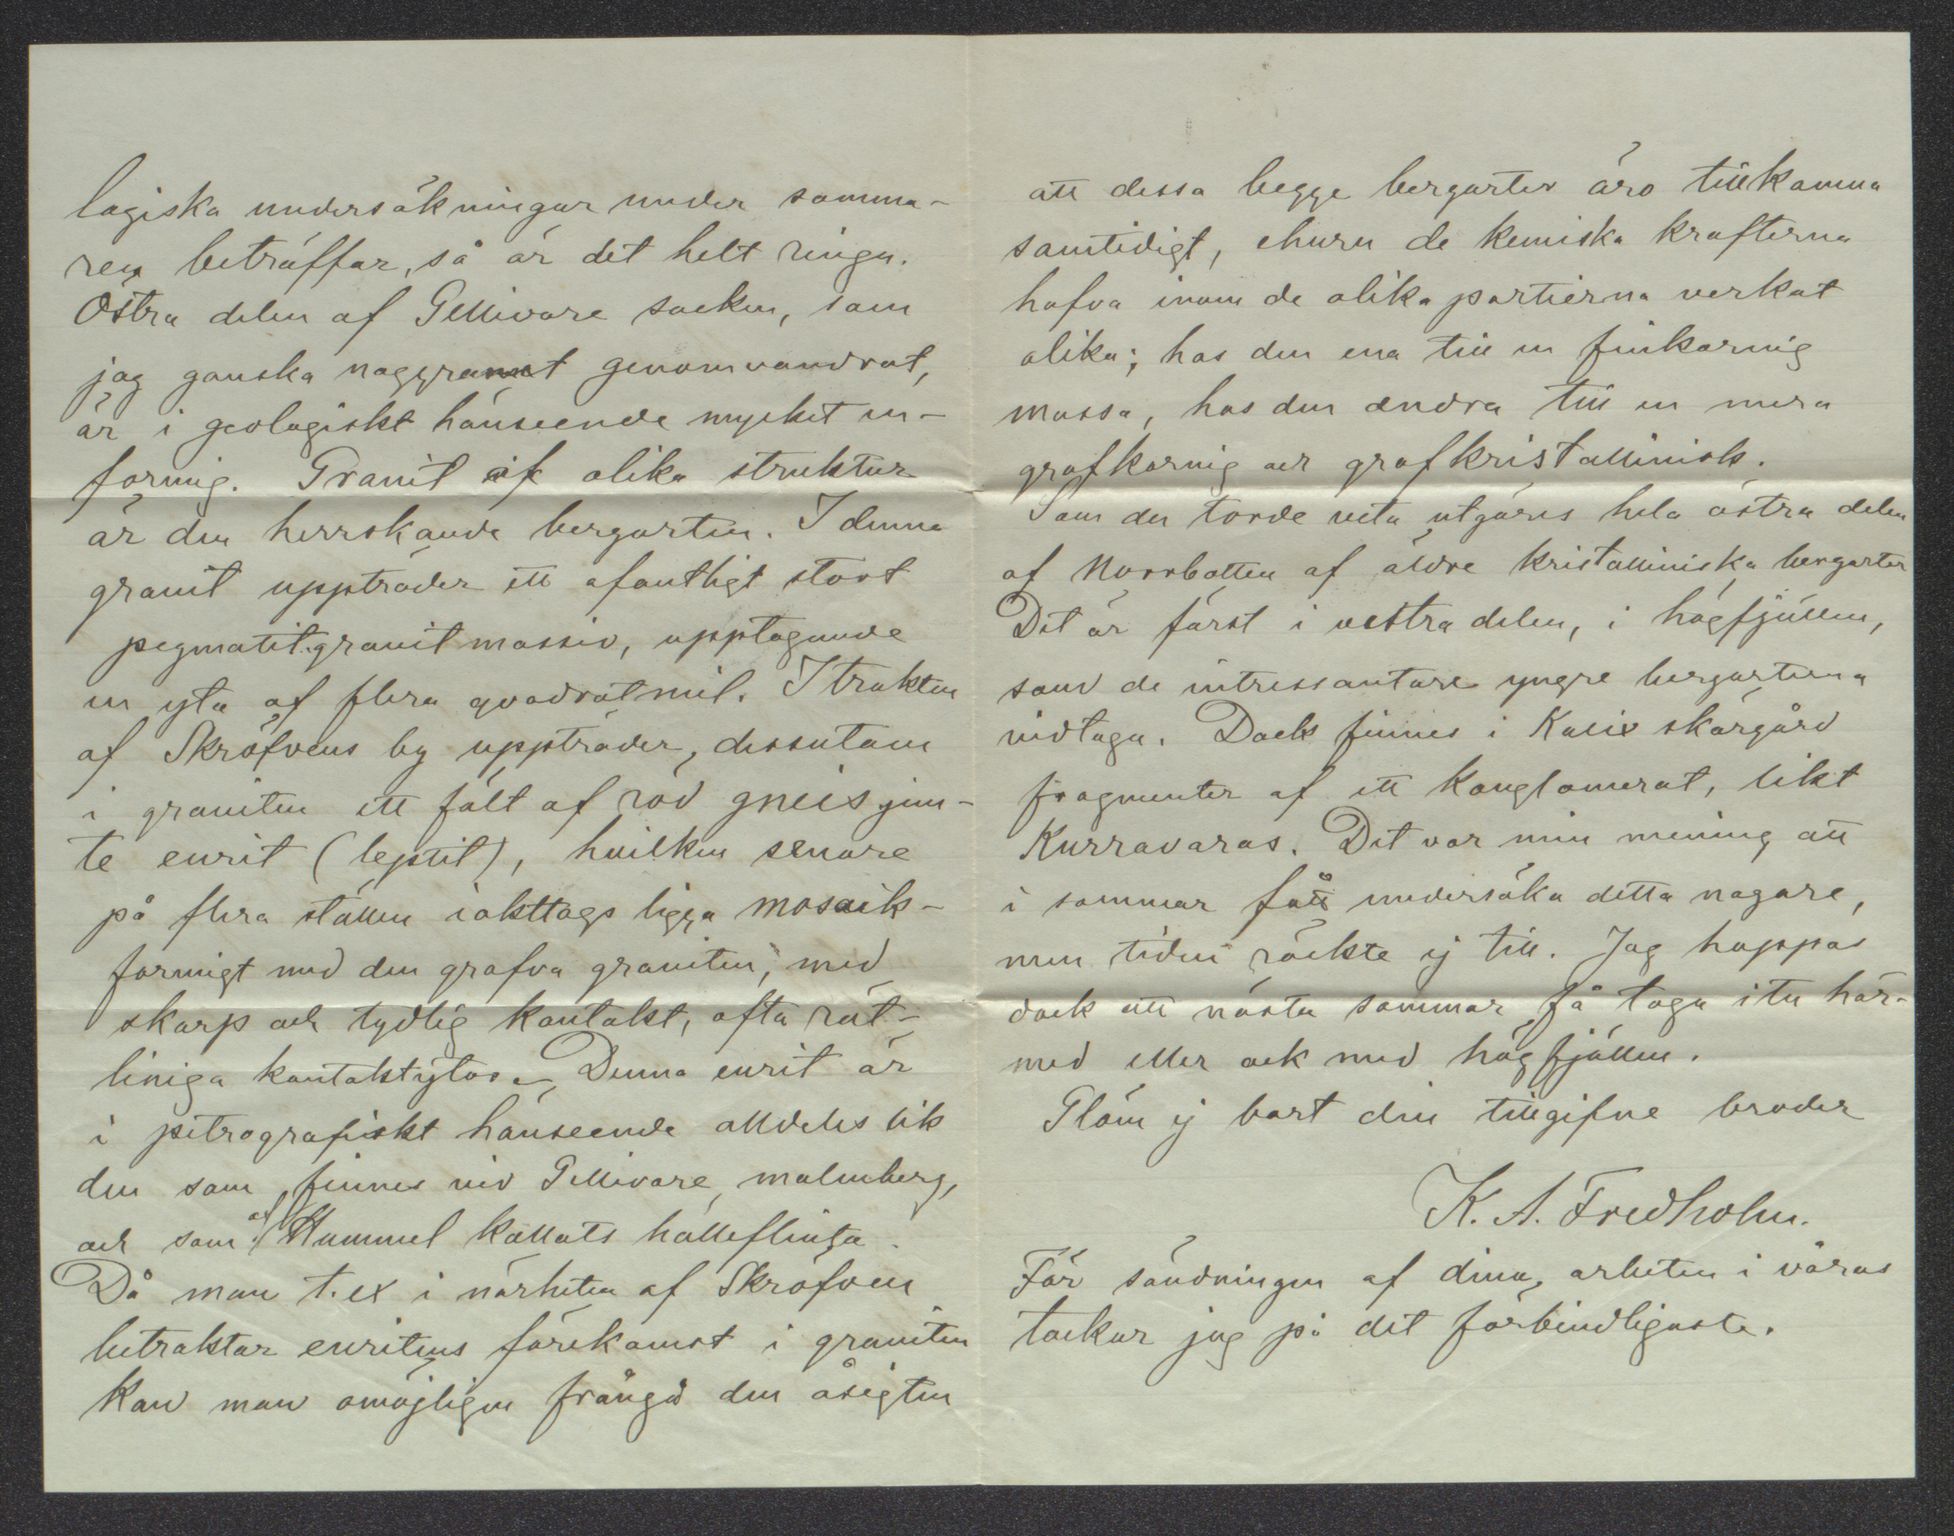 logiska undersökningar under somma-
ren beträffar, så är det helt ringa.
Östra delen af Gellivare socken, som
jag ganska noggrannt genomvandrat,
är i geologiskt hänseende mycket en-
formig. Granit af olika struktur
är den herrskande bergarten. I denna
granit uppträder ett ofantligt stort
pegmatit-granit massiv, upptagande
en yta af flera qvadratmil. I trakten
af Skröfvens by uppträder, dessutom
i graniten ett fält af röd gneisjem-
te eurit (leptit), hvilken senare
på flera ställen iakttags ligga mosaik-
formigt med den grofva graniten, med
skarp och tydlig kontakt, ofta rät-
liniga kontaktytor. Denna eurit är
i petrografiskt hänseende alldeles lik
den som finnes vid Gellivare malmberg,
och som af Hummel kallats hälleflinta.
Då man t. ex i närheten af Skröfven
betraktar euritens förekomst i graniten
kan man omöjligen frångå den åsigten
att dessa begge bergarter äro tillkomna
samtidigt, ehuru de kemiska krafterna
hafva inom de olika partierna verkat
olika; hos den ena till en finkornig
massa, hos den andra till en mera
grofkornig och grofkristallinisk.
Som du torde veta utgöres hela östra delen
af Norrbotten af äldre kristalliniska bergarter
Det är först i vestra delen, i högfjällen,
som de intressantare yngre bergarterna
vidtaga. Dock finnes i Kalix skärgård
fragmenter af ett konglomerat, likt
Kurravaras. Det var min mening att
i sommar få undersöka detta nogare,
men tiden räckte ej till. Jag hoppas
dock att nästa sommar få taga itu här-
med eller ock med högfjällen.
Glöm ej bort din tillgifne broder
K. A. Fredholm.
För sändningen af dina arbeten i våras
tackar jag på det förbindligaste.